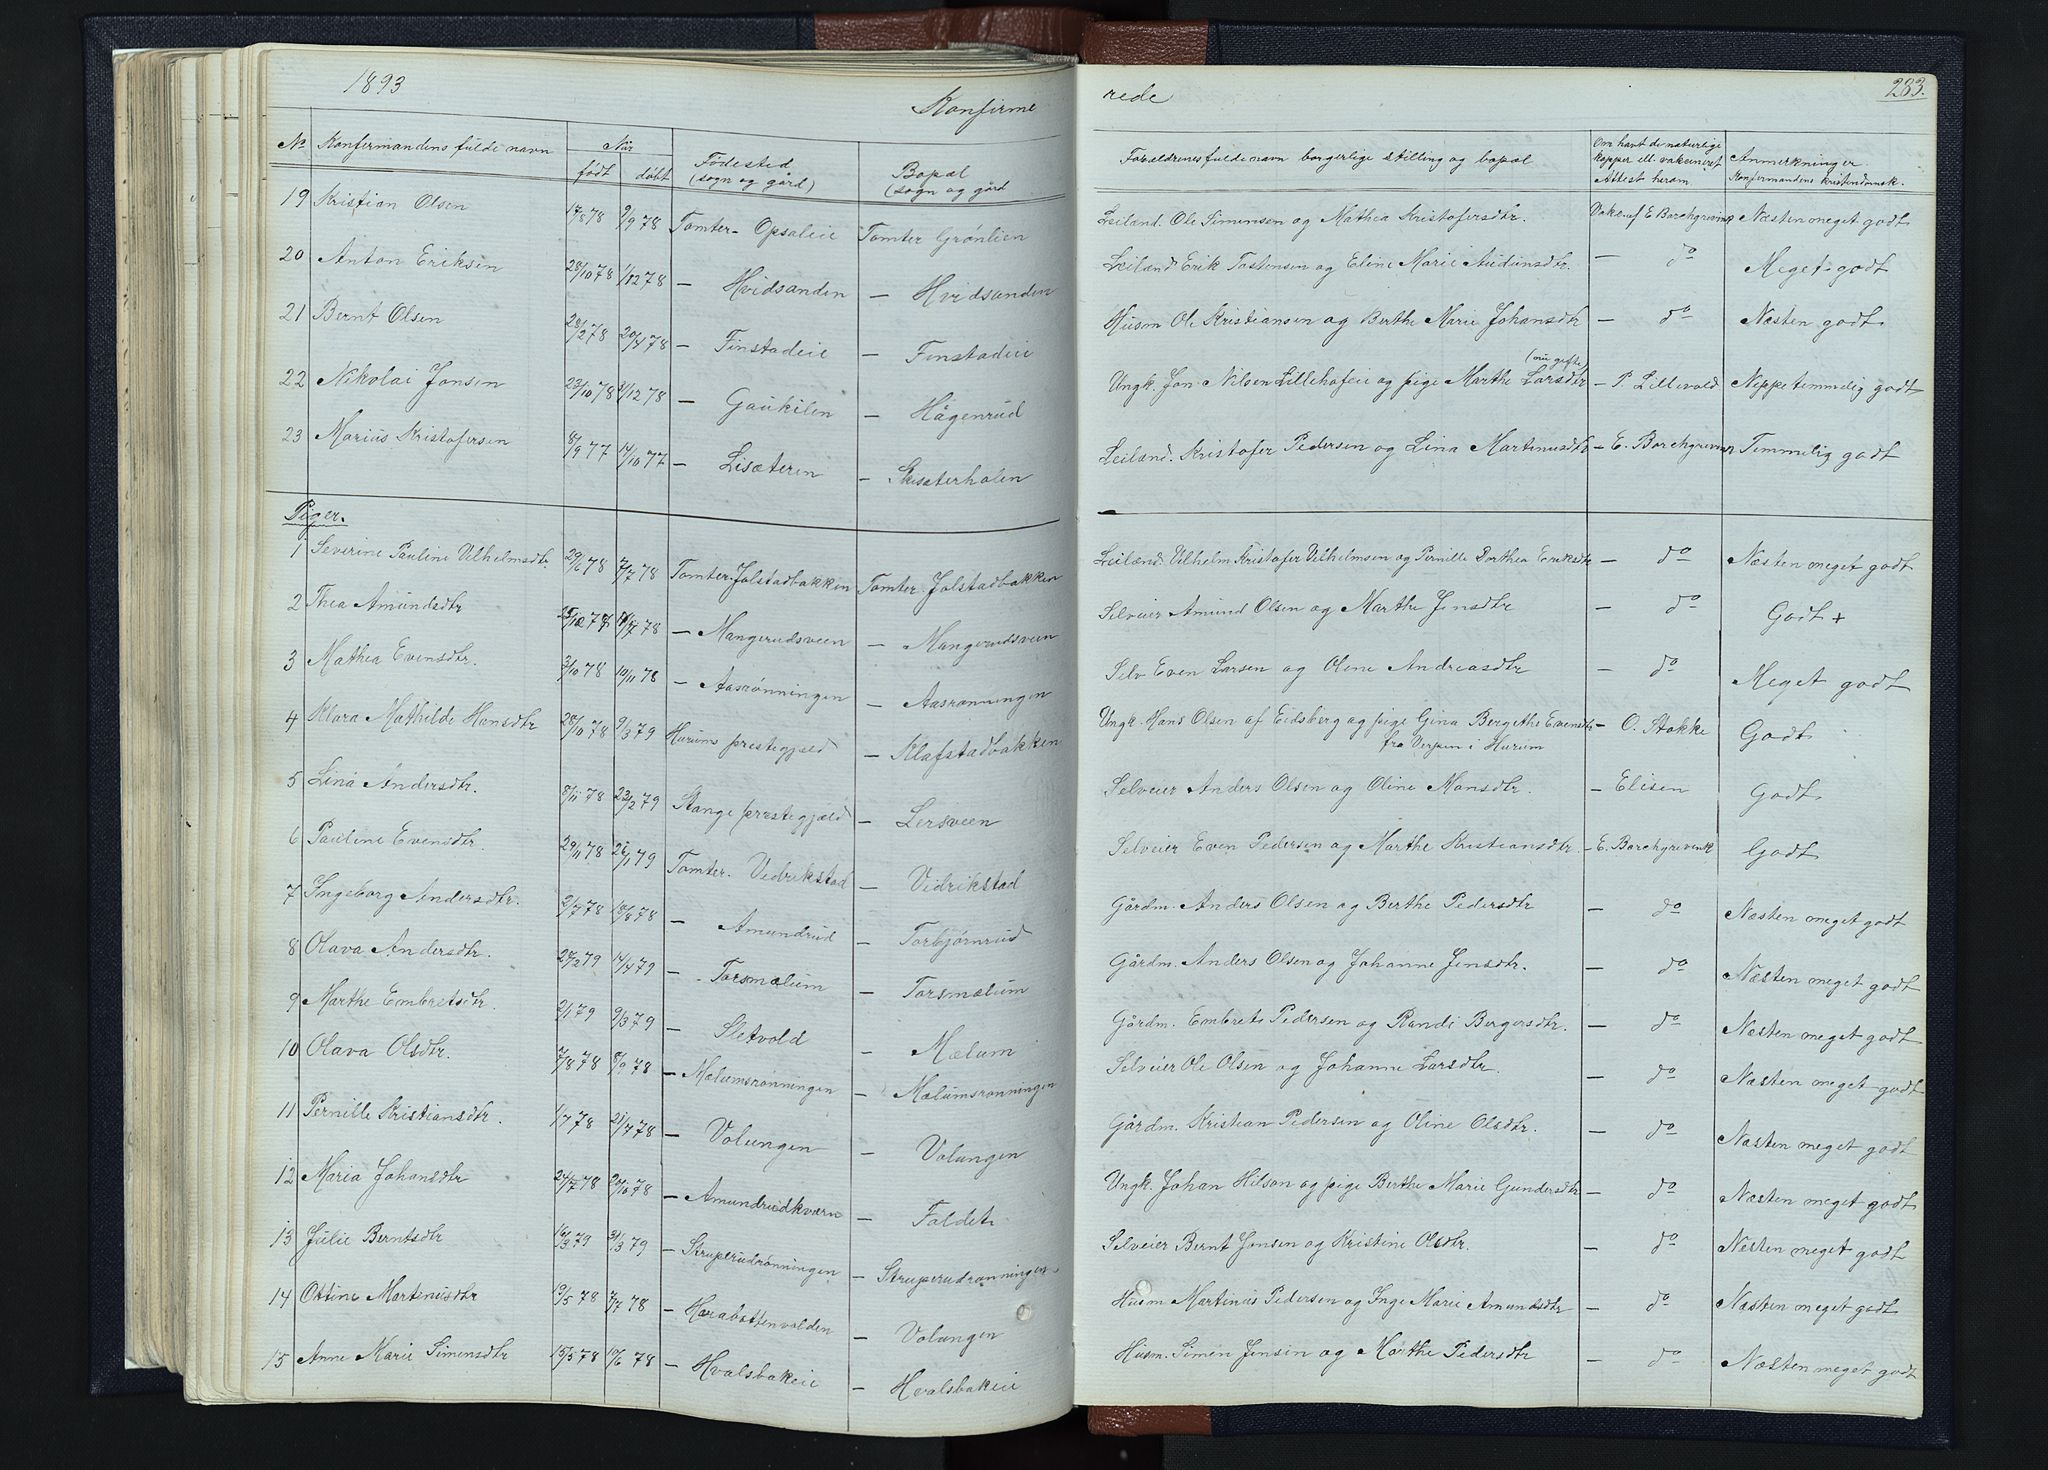 1893
Konfirme
No Konfermandens fulde navn Når født døbt Fødested (sogn og gård) Bopæl (sogn og gård
19 Kristian Olsen 17/8 78 9/9 78 Tomter- Opsaleie Tomter Grønlien
20 Anton Eriksen 28/10 78 1/12 78 — Hvidsanden — Hvidsanden
21 Bernt Olsen 28/2 78 — Finstadeie — Finstadeie
22 Nikolai Jonsen 23/10 78 — Gaukilen — Hågenrud
23 Marius Kristofersen 8/9 77 14/10 77 — Lisæteren — Skisæterholen
Piger.
1 Severine Pauline Vilhelmsdtr 29/6 78 7/7 78 Tomter. Jolstadbakken Tomter. Jolstadbakken
2 Thea Amundsdtr — Mangerudsveen — Mangerudsveen
3 Mathea Evensdtr. 3/10 78 10/11 78 — Aasrønningen — Aasrønningen
4 Klara Mathilde Hansdtr 28/10 78 9/3 79 Hurums prestegjeld — Klafstadbakken
5 Lina Andersdtr. 8/11 78 23/2 79 Stange prestegjæld — Lersveen
6 Pauline Evensdtr. 29/11 78 26/1 79 Tomter. Vedrikstad — Vidrikstad
7 Ingeborg Andersdtr. 2/7 78 18/8 78 — Amundrud — Torbjørnrud
8 Olava Andersdtr. 28/2 79 14/4 79 — Torsmælum — Torsmælum
9 Marthe Embretsdtr. 2/1 79 9/3 79 — Sletvold — Mælum
10 Olava Olsdtr. 7/8 78 8/9 78 — Mælumsrønningen — Mælumsrønningen
11 Pernille Kristiansdtr. 1/7 78 21/7 78 — Volungen — Volungen
12 Maria Johansdtr 24/7 78 20/10 78 — Amundrudkværn — Foldet
13 Julie Berntsdtr 16/3 79 31/3 79 — Struperudrønningen — Struperudrønningen
14 Ottine Martinusdtr 19/5 78 7/7 78 — Harabottenvolden — Volungen
15 Anne Marie Simensdtr 15/5 78 10/6 78 — Hvalsbakeie — Hvalsbakeie
rede
283.
Forældrenes fulde navn borgerlige stilling og bopæl Om havt de naturlige kopper ell vakcineret Attest herom. Anmerkninger Konfermandens kristendomsk.
Leilænd. Ole Simensen og Mathea Kristofersdtr. Vake. af E Borchgrevink Næsten meget godt
Leilænd Erik Tostensen og Eline Marie Audunsdtr. — do Meget godt
Husm Ole Kristiansen og Berthe Marie Johansdtr — do Næsten godt
(nu gifte)
Ungk. Jon Nilsen Lillehofeie og pige Marthe Larsdtr — P. Lillevold Neppe temmelig godt
Leilænd. Kristofer Pedersen og Lina Martinusdtr — E. Borchgrevink Temmelig godt
Leilænd. Vilhelm Kristofer Vilhelmsen og Pernille Dorthea Eriksdtr — do Næsten meget godt
Selveier Amund Olsen og Marthe Jensdtr — do Godt +
Selv Even Larsen og Oline Andreasdtr — do Meget godt
Ungk. Hans Olsen af Eidsberg og pige Gina Bergithe Evensdtr — O. Stokke Godt
fra Verpen i Hurum
Selveier Anders Olsen og Oline Hansdtr. — Elisen Godt
Selveier Even Pedersen og Marthe Kristiansdtr. — E. Borchgrevink Godt
Gårdm. Anders Olsen og Berthe Pedersdtr — do Næsten meget godt
Gårdm. Anders Olsen og Johanne Jensdtr. — do Næsten meget godt
Gårdm. Embret Pedersen og Randi Bergersdtr. — do Næsten meget godt
Selveier Ole Olsen og Johanne Larsdtr. — do Næsten meget godt
Gårdm. Kristian Pedersen og Oline Olsdtr. — do Næsten meget godt
Ungk. Johan Hilson og pige Berthe Marie Gundersdtr — do Næsten meget godt
Selveier Bernt Jensen og Kristine Olsdtr. — do Næsten meget godt
Husm Martinus Pedersen og Inge Marie Amundsdtr — do Næsten meget godt
Husm. Simen Jensen og Marthe Pedersdtr — do Næsten meget godt